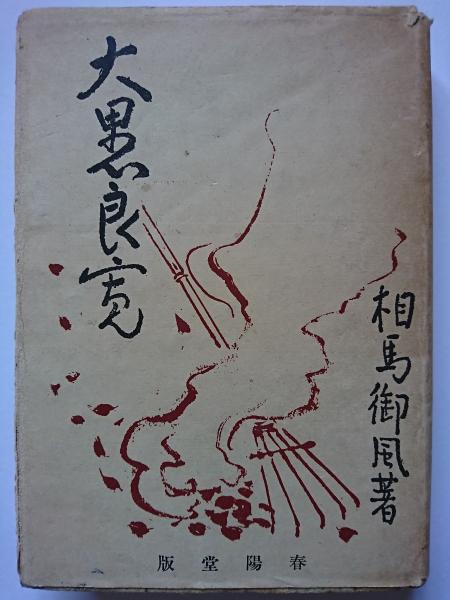 大愚良寛
相馬御風著
版堂陽春